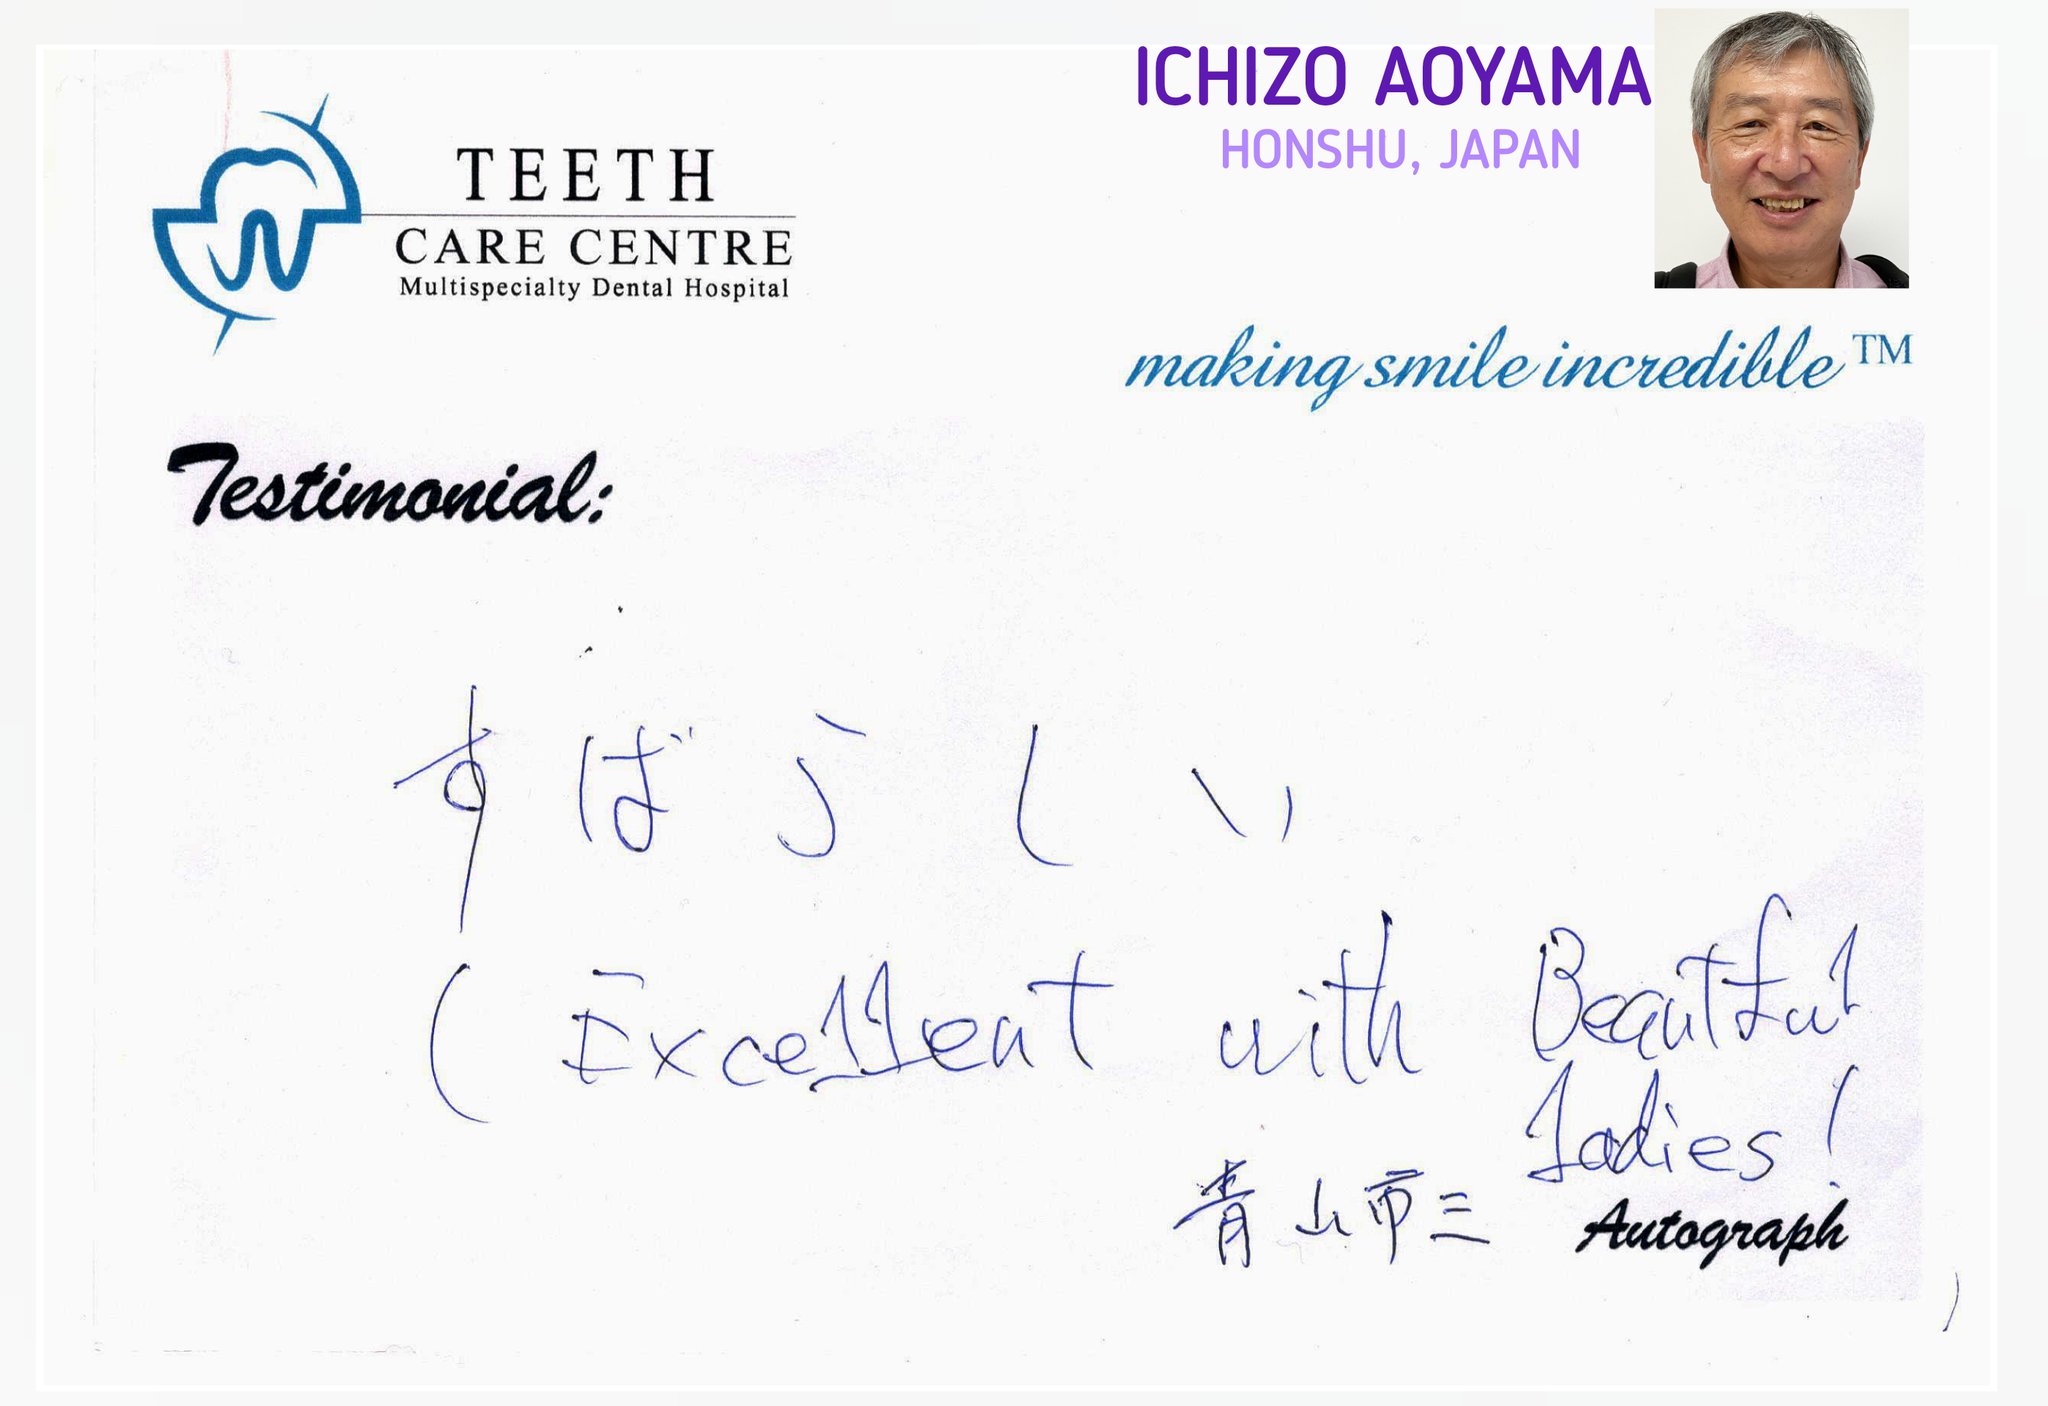 ICHIZO AOYAMA
HONSHU, JAPAN
TEETH
CARE CENTRE
Multispecialty Dental Hospital
making smile incredible™
Testimonial:
すばらしい
(Excellent with Beautful
Ladies!
青山市三
Autograph
)